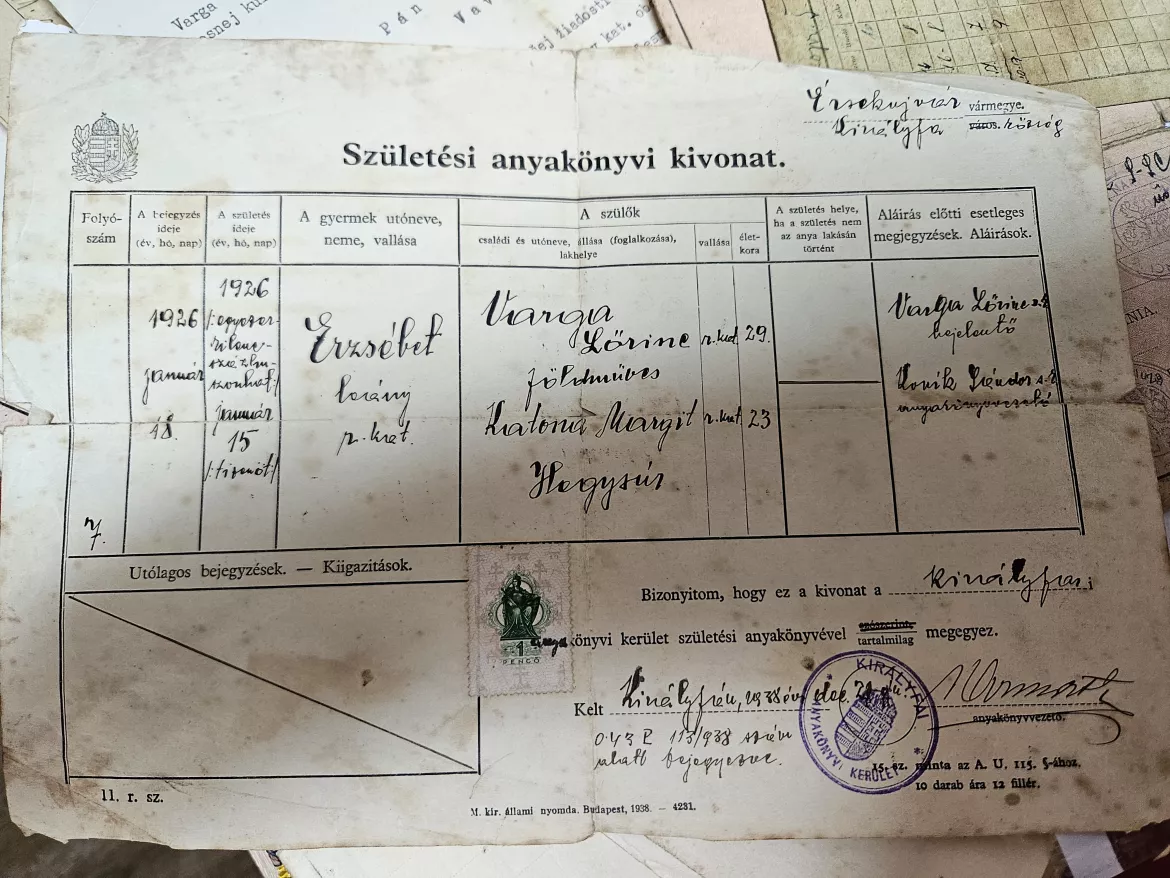 Varga
Pán
Érsekujvár vármegye.
Királyfa város. község
Születési anyakönyvi kivonat.
Folyó-
szám
A bejegyzés
ideje
(év, hó, nap)
A születés
ideje
(év, hó, nap)
A gyermek utóneve,
neme, vallása
A szülők
családi és utóneve, állása (foglalkozása),
lakhelye
vallása
élet-
kora
A születés helye,
ha a születés nem
az anya lakásán
történt
Aláírás előtti esetleges
megjegyzések. Aláirások.
7.
1926
január
18.
1926
/:egyezer-
kilenc-
százhu-
szonhat:/
január
15
/:tizenöt:/
Erzsébet
leány
r. kat.
Varga
Lőrinc r. kat. 29.
földmüves
Katona Margit r. kat. 23
Hegysúr
Varga Lőrinc s.k.
bejelentő
Sándor s.k.
anyakönyvvezető
Utólagos bejegyzések. — Kiigazitások.
1
PENGŐ
Bizonyitom, hogy ez a kivonat a királyfai
anyakönyvi kerület születési anyakönyvével szószerint tartalmilag megegyez.
Kelt Királyfán, 1938 évi dec. 21
anyakönyvvezető.
043 P 113/938 szám
alatt bejegyezve.
KIRÁLYFAI
ANYAKÖNYVI KERÜLET
15. sz. minta az A. U. 115. §-ához.
10 darab ára 12 fillér.
11. r. sz.
M. kir. állami nyomda. Budapest, 1938. — 4231.